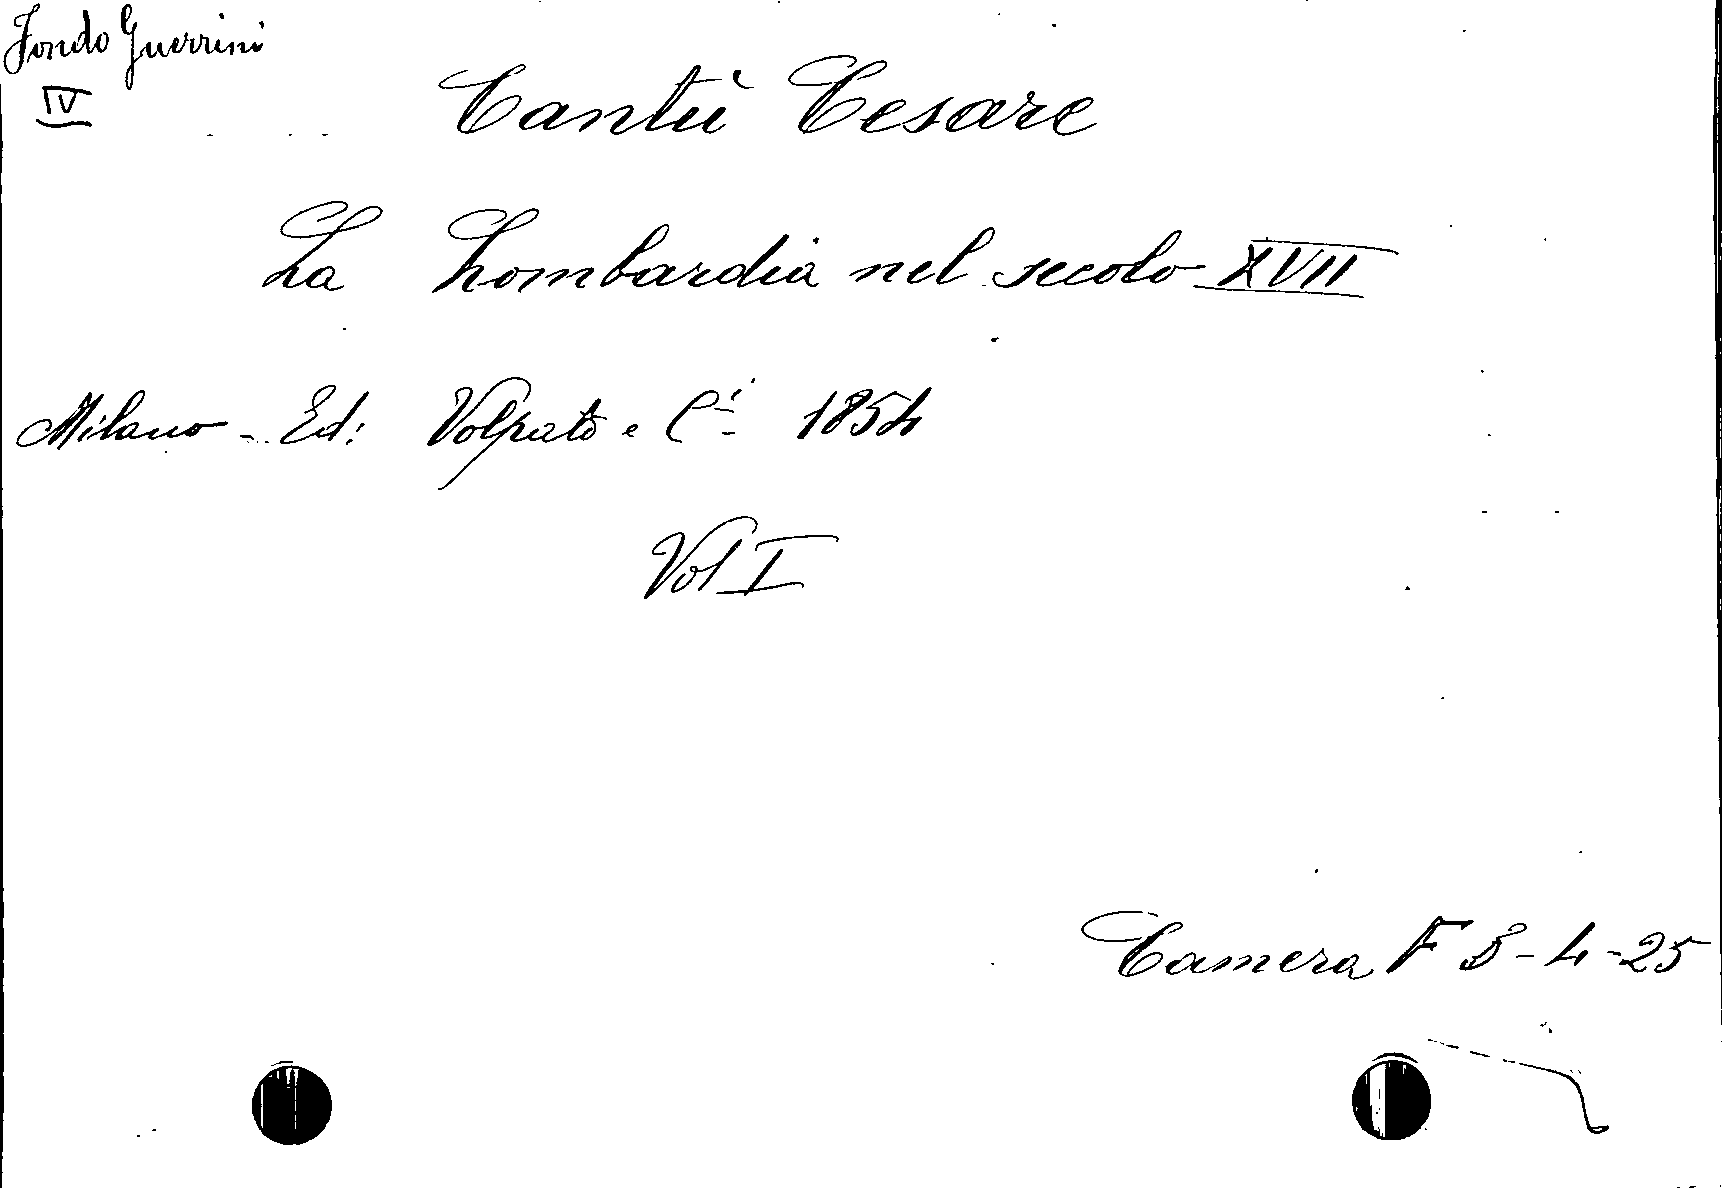 Fondo Guerrini
IV
Cantù Cesare
La Lombardia nel secolo XVII
Milano - Ed: Volpato e C.i 1854
Vol I
Camera F S-4-25